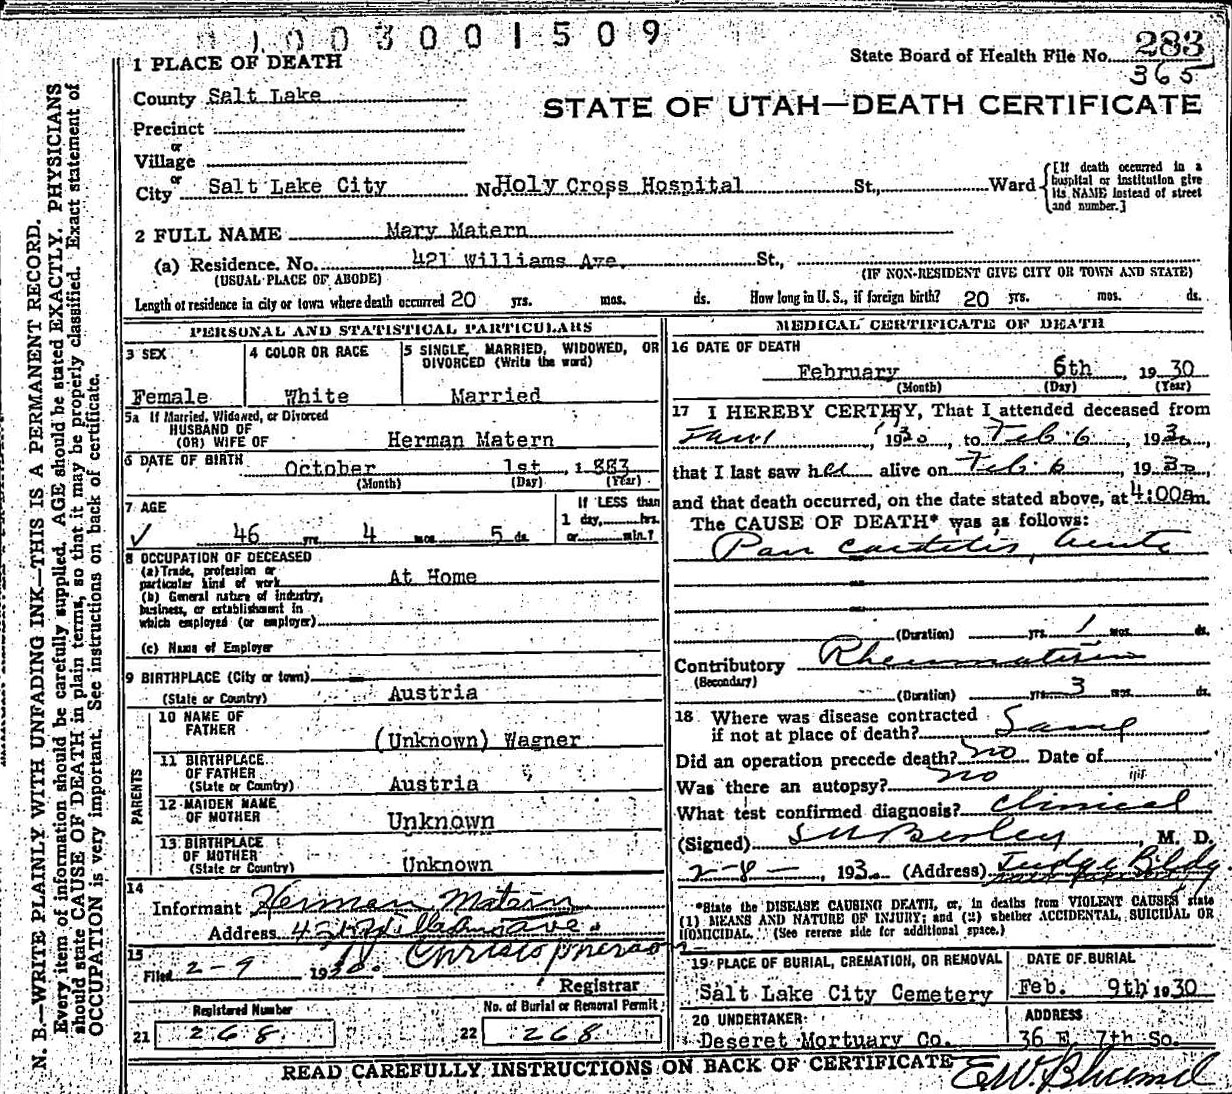 1003001509
State Board of Health File No. 283
365
1 PLACE OF DEATH
County Salt Lake
STATE OF UTAH—DEATH CERTIFICATE
Precinct
or
Village
or
City Salt Lake City No. Holy Cross Hospital St., Ward
[If death occurred in a hospital or institution give its NAME instead of street and number.]
2 FULL NAME Mary Matern
(a) Residence. No. 421 Williams Ave. St.,
(USUAL PLACE OF ABODE) (IF NON-RESIDENT GIVE CITY OR TOWN AND STATE)
Length of residence in city or town where death occurred 20 yrs. mos. ds. How long in U. S., if foreign birth? 20 yrs. mos. ds.
PERSONAL AND STATISTICAL PARTICULARS
3 SEX 4 COLOR OR RACE 5 SINGLE, MARRIED, WIDOWED, OR
DIVORCED (Write the word)
Female White Married
5a If Married, Widowed, or Divorced
HUSBAND OF
(OR) WIFE OF Herman Matern
6 DATE OF BIRTH October 1st, 1883
(Month) (Day) (Year)
7 AGE If LESS than
1 day, hrs.
46 yrs. 4 mos. 5 ds. or min.?
8 OCCUPATION OF DECEASED
(a) Trade, profession or
particular kind of work At Home
(b) General nature of industry,
business, or establishment in
which employed (or employer)
(c) Name of Employer
9 BIRTHPLACE (City or town)
(State or Country) Austria
PARENTS
10 NAME OF
FATHER (Unknown) Wagner
11 BIRTHPLACE
OF FATHER
(State or Country) Austria
12 MAIDEN NAME
OF MOTHER Unknown
13 BIRTHPLACE
OF MOTHER
(State or Country) Unknown
14
Informant Herman Matern
Address 421 Williams Ave.
15
Filed 2-9 1930.
Registrar
Registered Number No. of Burial or Removal Permit
21 268 22 268
MEDICAL CERTIFICATE OF DEATH
16 DATE OF DEATH
February 6th, 1930
(Month) (Day) (Year)
17 I HEREBY CERTIFY, That I attended deceased from
Jan 1, 1930, to Feb. 6, 1930,
that I last saw her alive on Feb. 6, 1930,
and that death occurred, on the date stated above, at 4:00am.
The CAUSE OF DEATH* was as follows:
Pan Carditis, Acute
(Duration) yrs. 1 mos. ds.
Contributory Rheumatism
(Secondary)
(Duration) yrs. 3 mos. ds.
18 Where was disease contracted
if not at place of death? Same
Did an operation precede death? no Date of
Was there an autopsy? no
What test confirmed diagnosis? Clinical
(Signed) M. D.
2-8-, 1930 (Address) Judge Bldg
*State the DISEASE CAUSING DEATH, or, in deaths from VIOLENT CAUSES state
(1) MEANS AND NATURE OF INJURY; and (2) whether ACCIDENTAL, SUICIDAL OR
HOMICIDAL. (See reverse side for additional space.)
19 PLACE OF BURIAL, CREMATION, OR REMOVAL DATE OF BURIAL
Salt Lake City Cemetery Feb. 9th 1930
20 UNDERTAKER ADDRESS
Deseret Mortuary Co. 36 E. 7th So.
READ CAREFULLY INSTRUCTIONS ON BACK OF CERTIFICATE
N. B.—WRITE PLAINLY WITH UNFADING INK—THIS IS A PERMANENT RECORD.
Every item of information should be carefully supplied. AGE should be stated EXACTLY. PHYSICIANS
should state CAUSE OF DEATH in plain terms, so that it may be properly classified. Exact statement of
OCCUPATION is very important. See instructions on back of certificate.